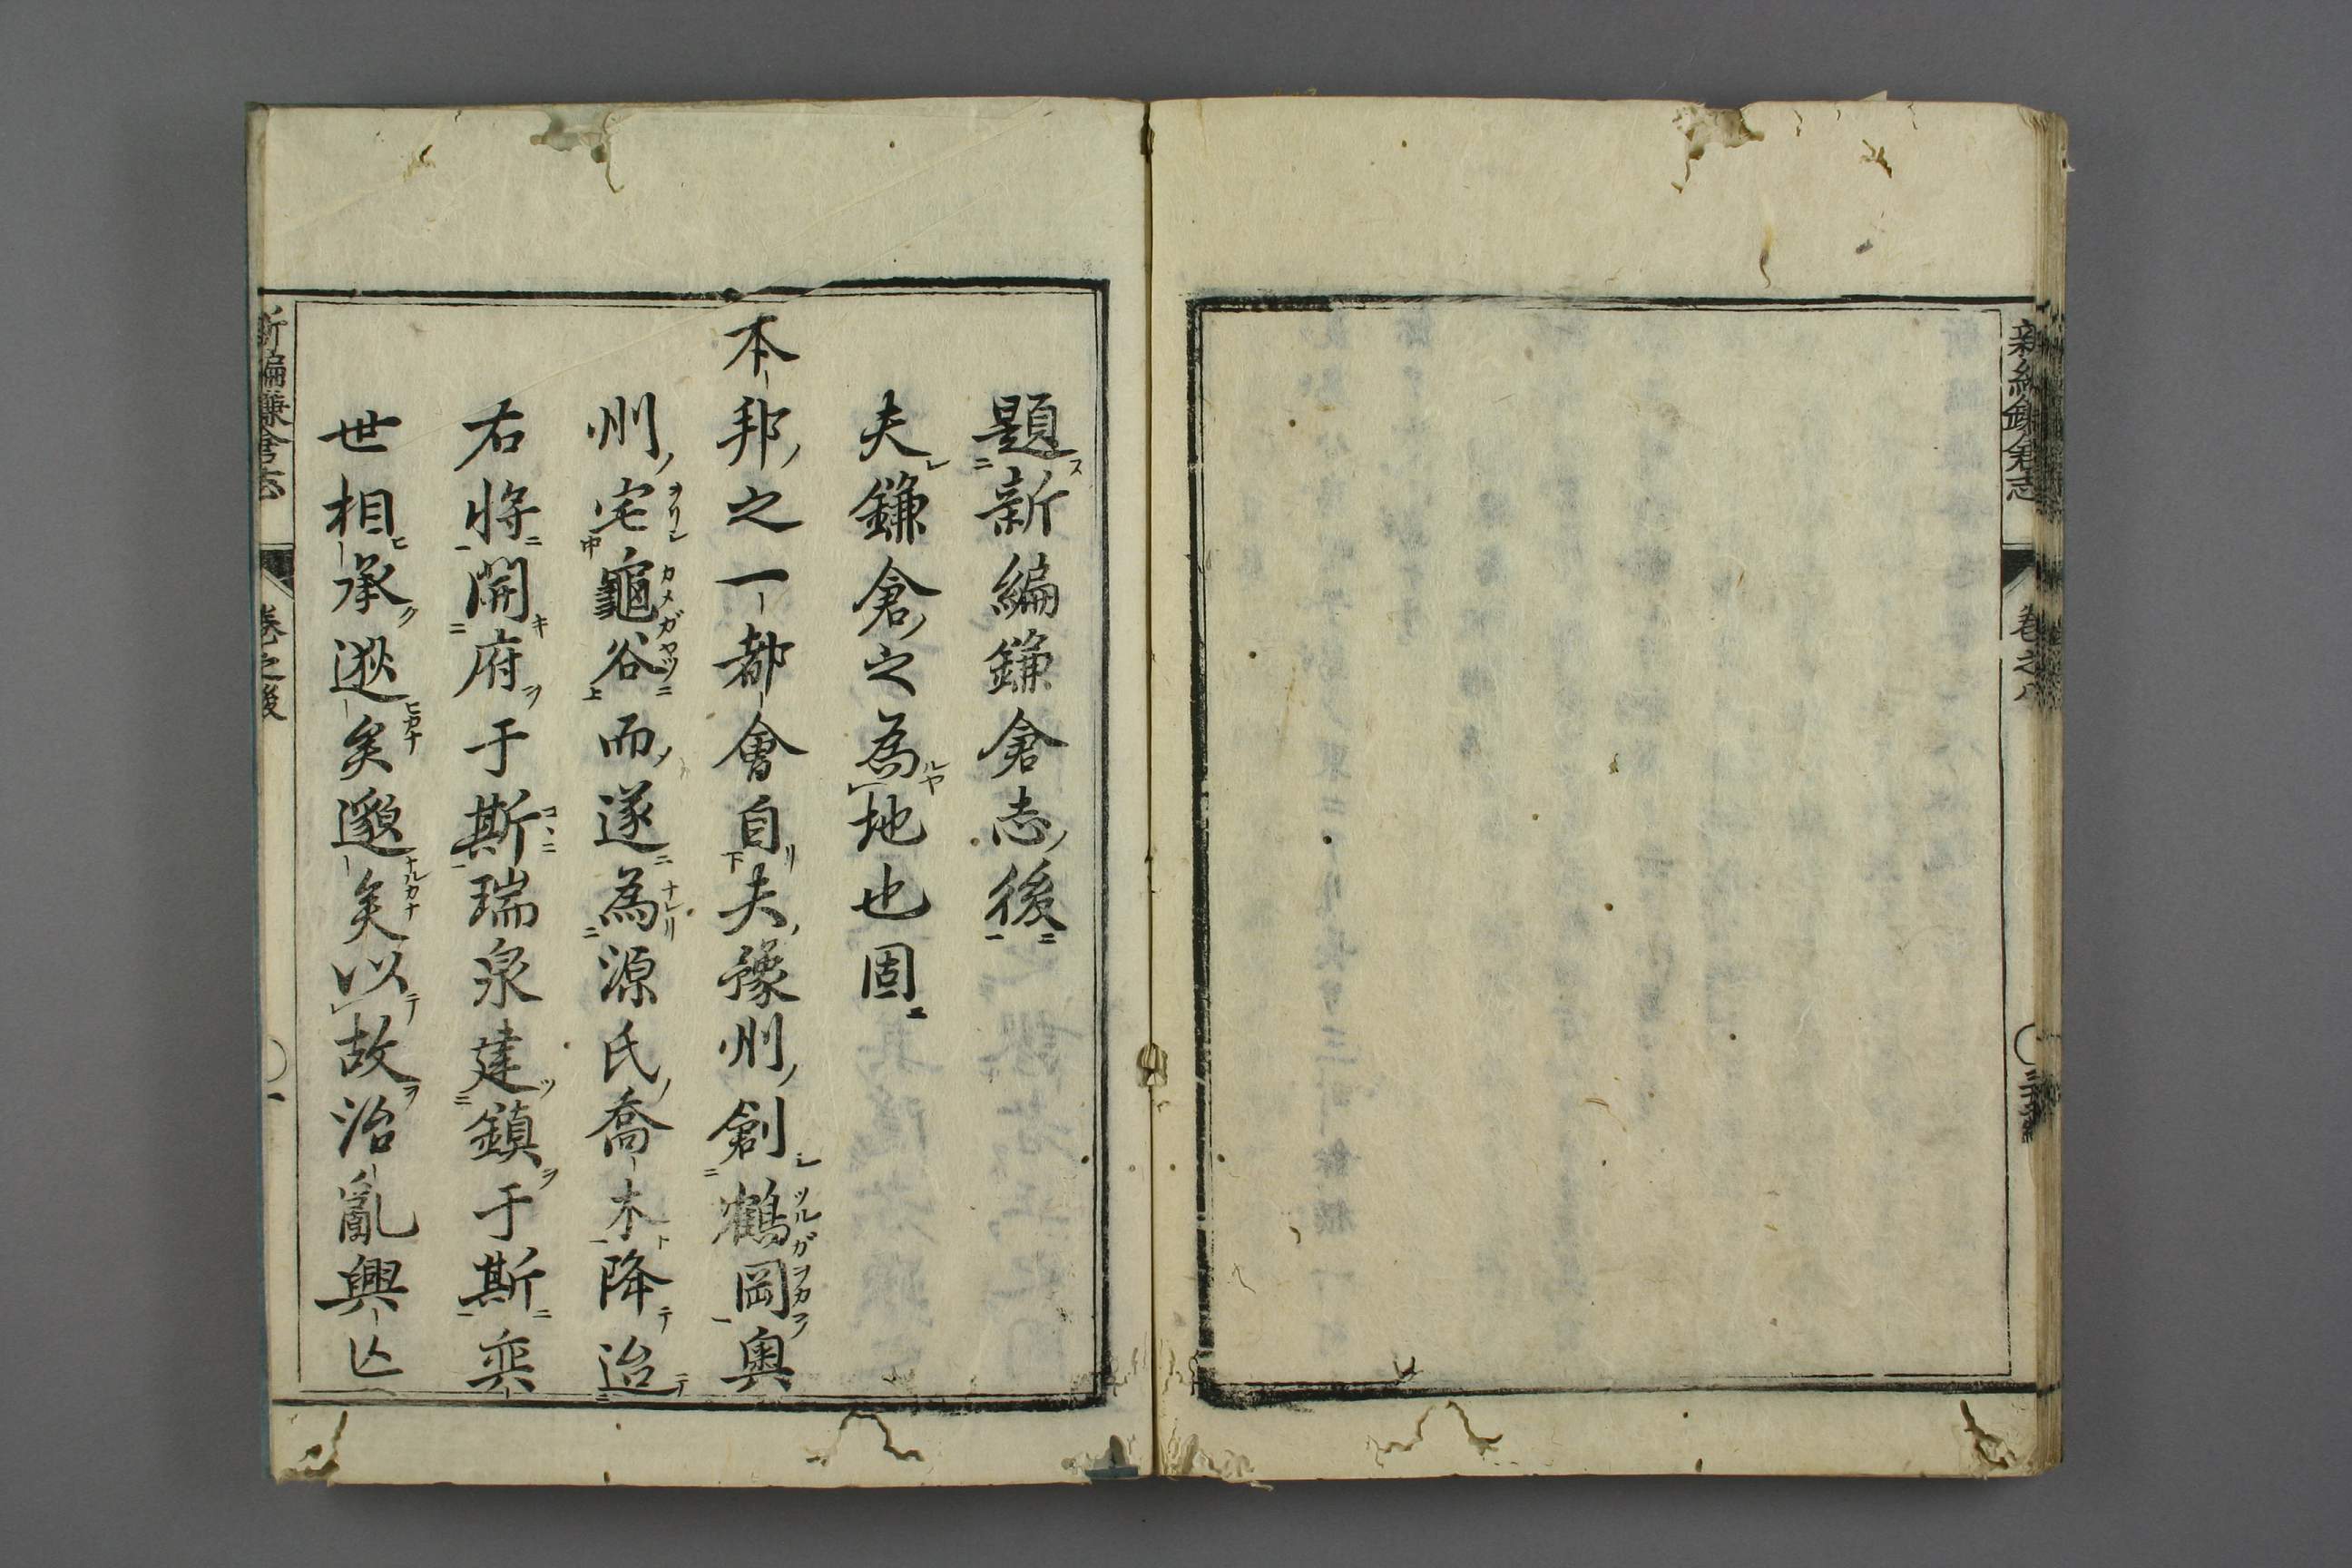 新編鎌倉志
卷之八
題新編鎌倉志後
夫鎌倉之為地也固
本邦之一都會自夫豫州創鶴岡奧
州宅龜谷而遂為源氏喬木降迨
右將開府于斯瑞泉建鎮于斯奕
世相承逖矣邈矣以故治亂興亾
新編鎌倉志
卷之後
一